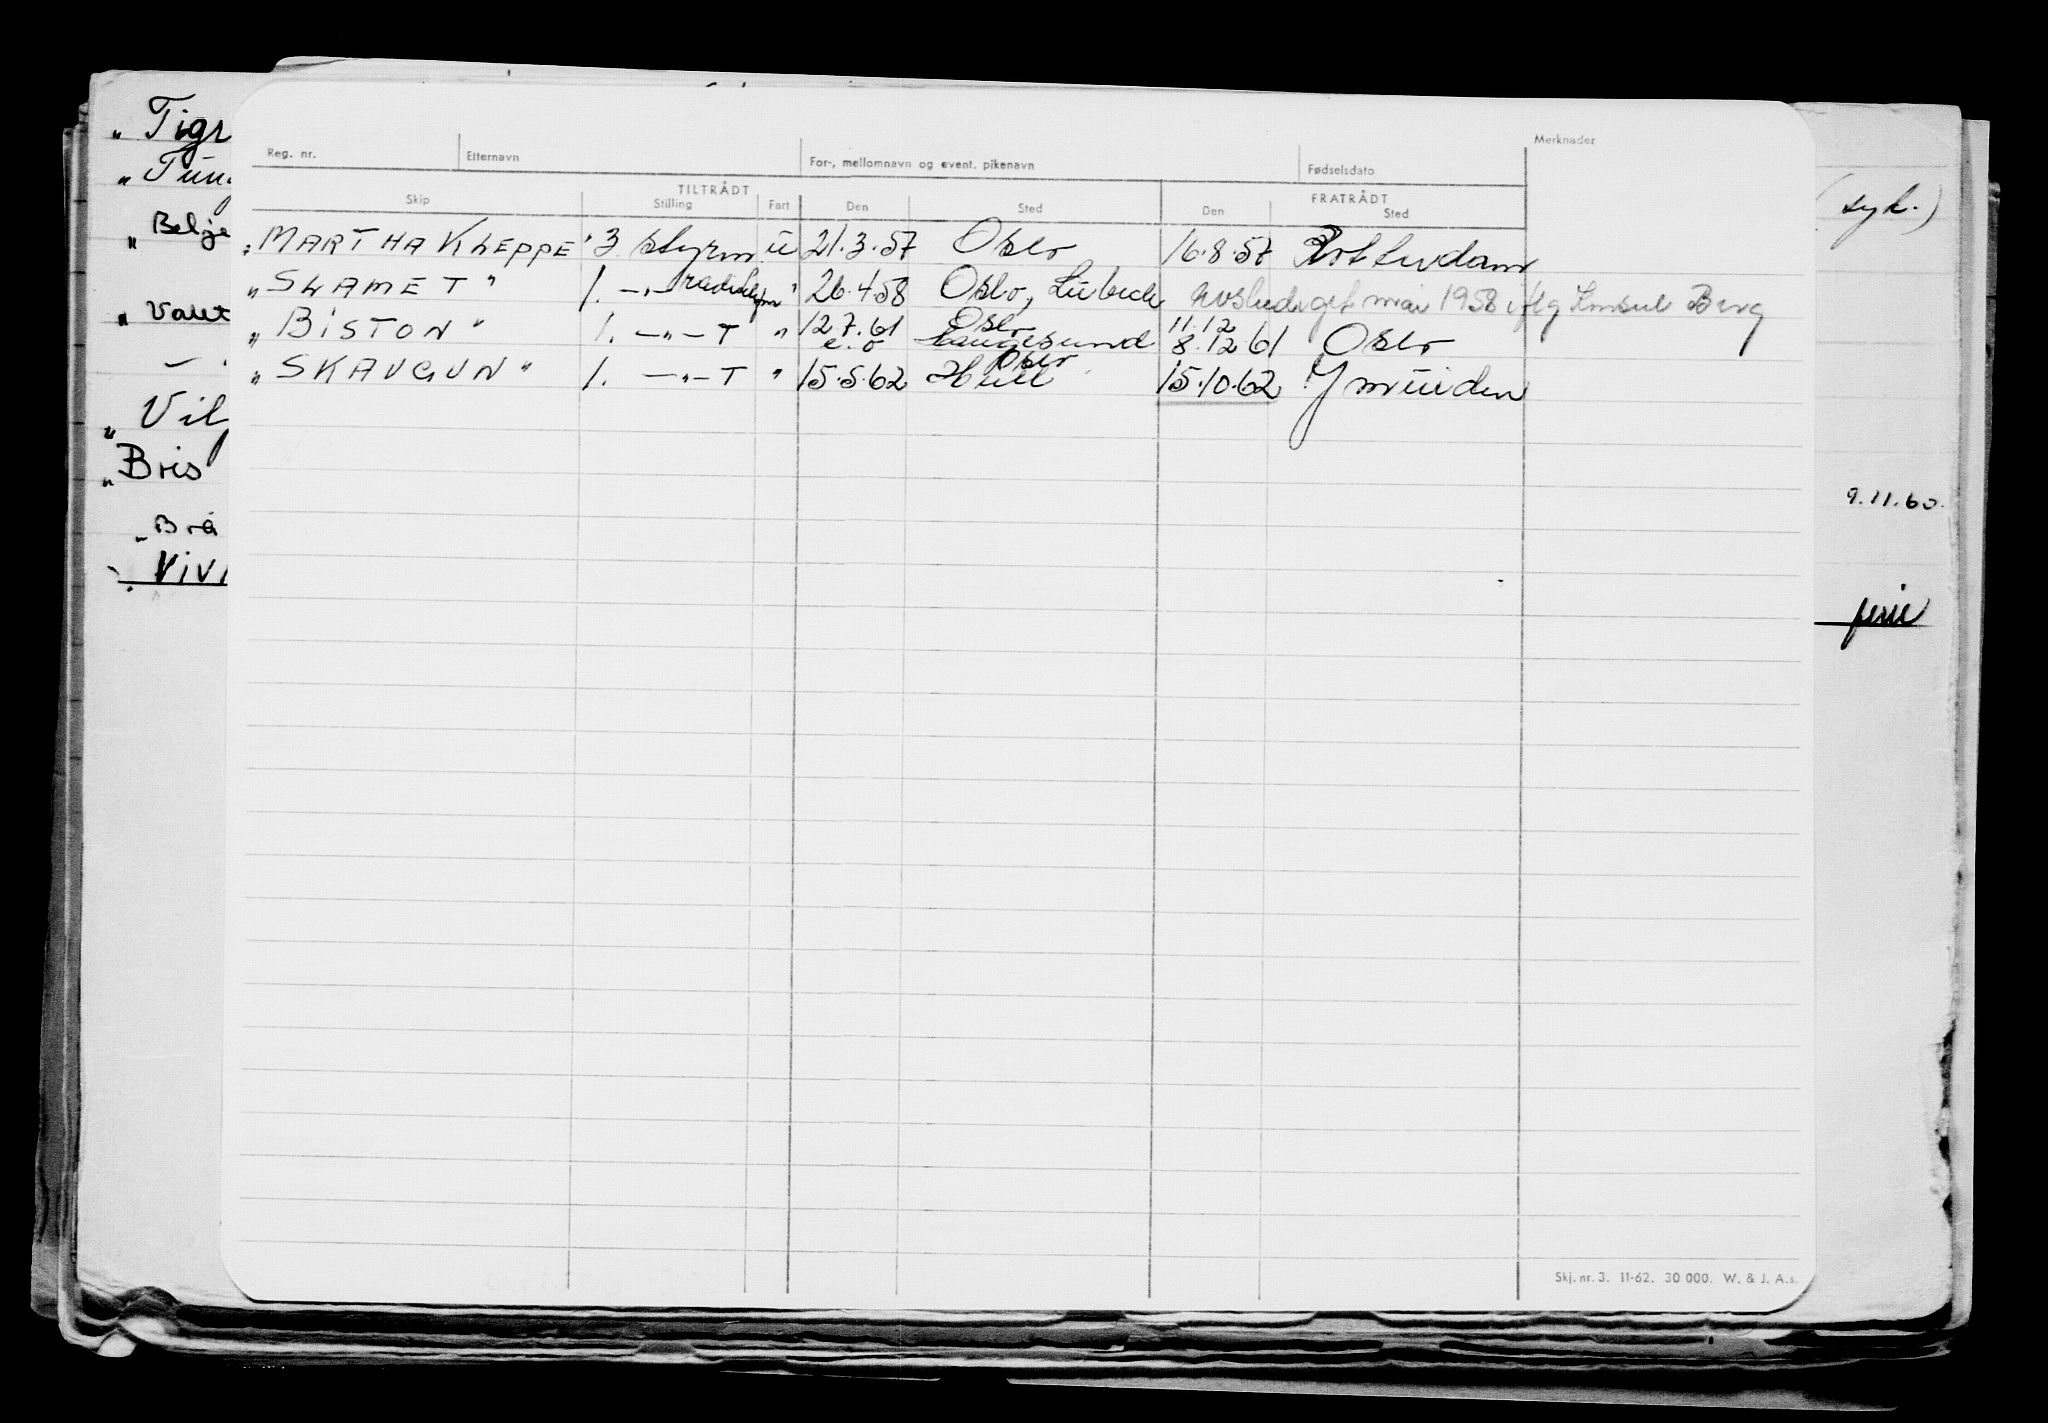 Reg. nr. Etternavn For-, mellomnavn og event. pikenavn Fødselsdato Merknader
TILTRÅDT FRATRÅDT
Skip Stilling Fart Den Sted Den Sted
„MARTHA KLEPPE" 3. styrm u 21.3.57 Oslo 16.8.57 Rotterdam
„SLAMET" 1. —„— " 26.4.58 Oslo, Lübeck mai 1958 iflg Konsul Berg
„BISTON" 1. —„— T " 12.7.61 Oslo 11.12
e.o Langesund 8.12 61 Oslo
„SKAUGUN" 1. —„— T " 15.5.62 Hull Oslo 15.10.62 Ymuiden
Skj. nr. 3. 11-62. 30 000. W. & J. A.s.
„Tigr
„Tun
„Belje
„Valet
„Vil
„Bris
„Bra
„Vivi
(syk.)
9.11.60.
ferie